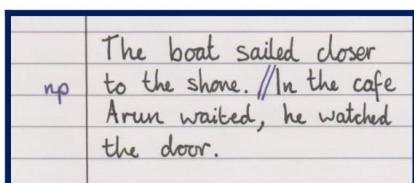 The boat sailed closer
np to the shore. //In the cafe
Arun waited, he watched
the door.